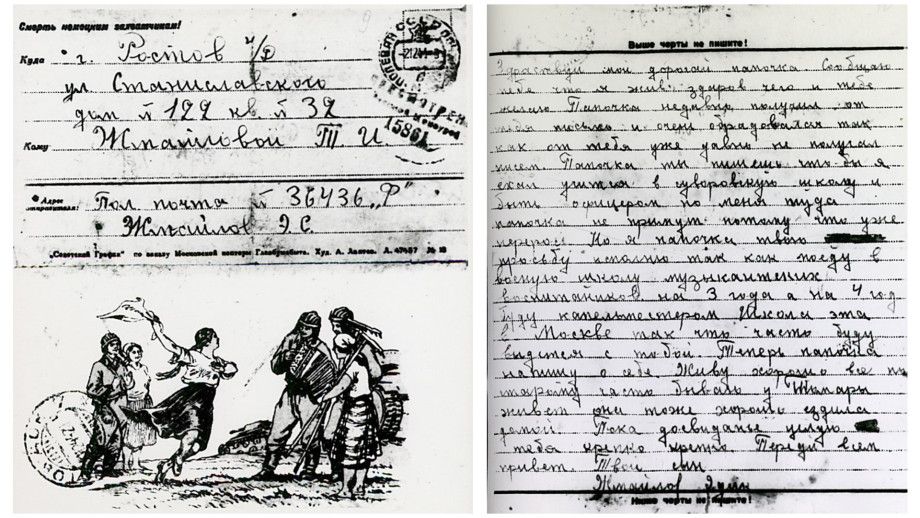 Смерть немецким захватчикам!
Куда г. Ростов н/Д
ул. Станиславского
дом № 122 кв № 32
Кому Жмайловой Т И
ПОЛЕВАЯ
15861
Адрес отправителя: Пол. почта № 36436 „Ф"
Жмайлов Э. С.
„Советский График" по заказу Московской конторы Главбумсбыта. Худ. А. Лаптев. № 18
Выше черты не пишите!
Здраствуй мой дорогой папочка. Сообщаю
тебе что я жив здаров чего и тебе
желаю Папочка недавно получил от
тебя письмо и очень обрадовался так
как от тебя уже давно не получал
писем. Папочка ты пишешь что бы я
ехал учится в суворовскую школу и
быть офицером но меня туда
папочка не примут потому что уже
Но я папочка твою
просьбу исполню так как поеду в
военую школу музыкантских
воспитаников на 3 года а на 4 год
буду капельместером Школа эта
в Москве так что часто буду
видется с тобой. Теперь папочка
напишу о себе Живу хорошо все по
старому часто бываю у
живет она тоже хорошо ездила
домой. Пока досвиданье целую
тебя крепко крепко Передай всем
привет. Твой сын
Жмайлов Эдик
Ниже черты не пишите!